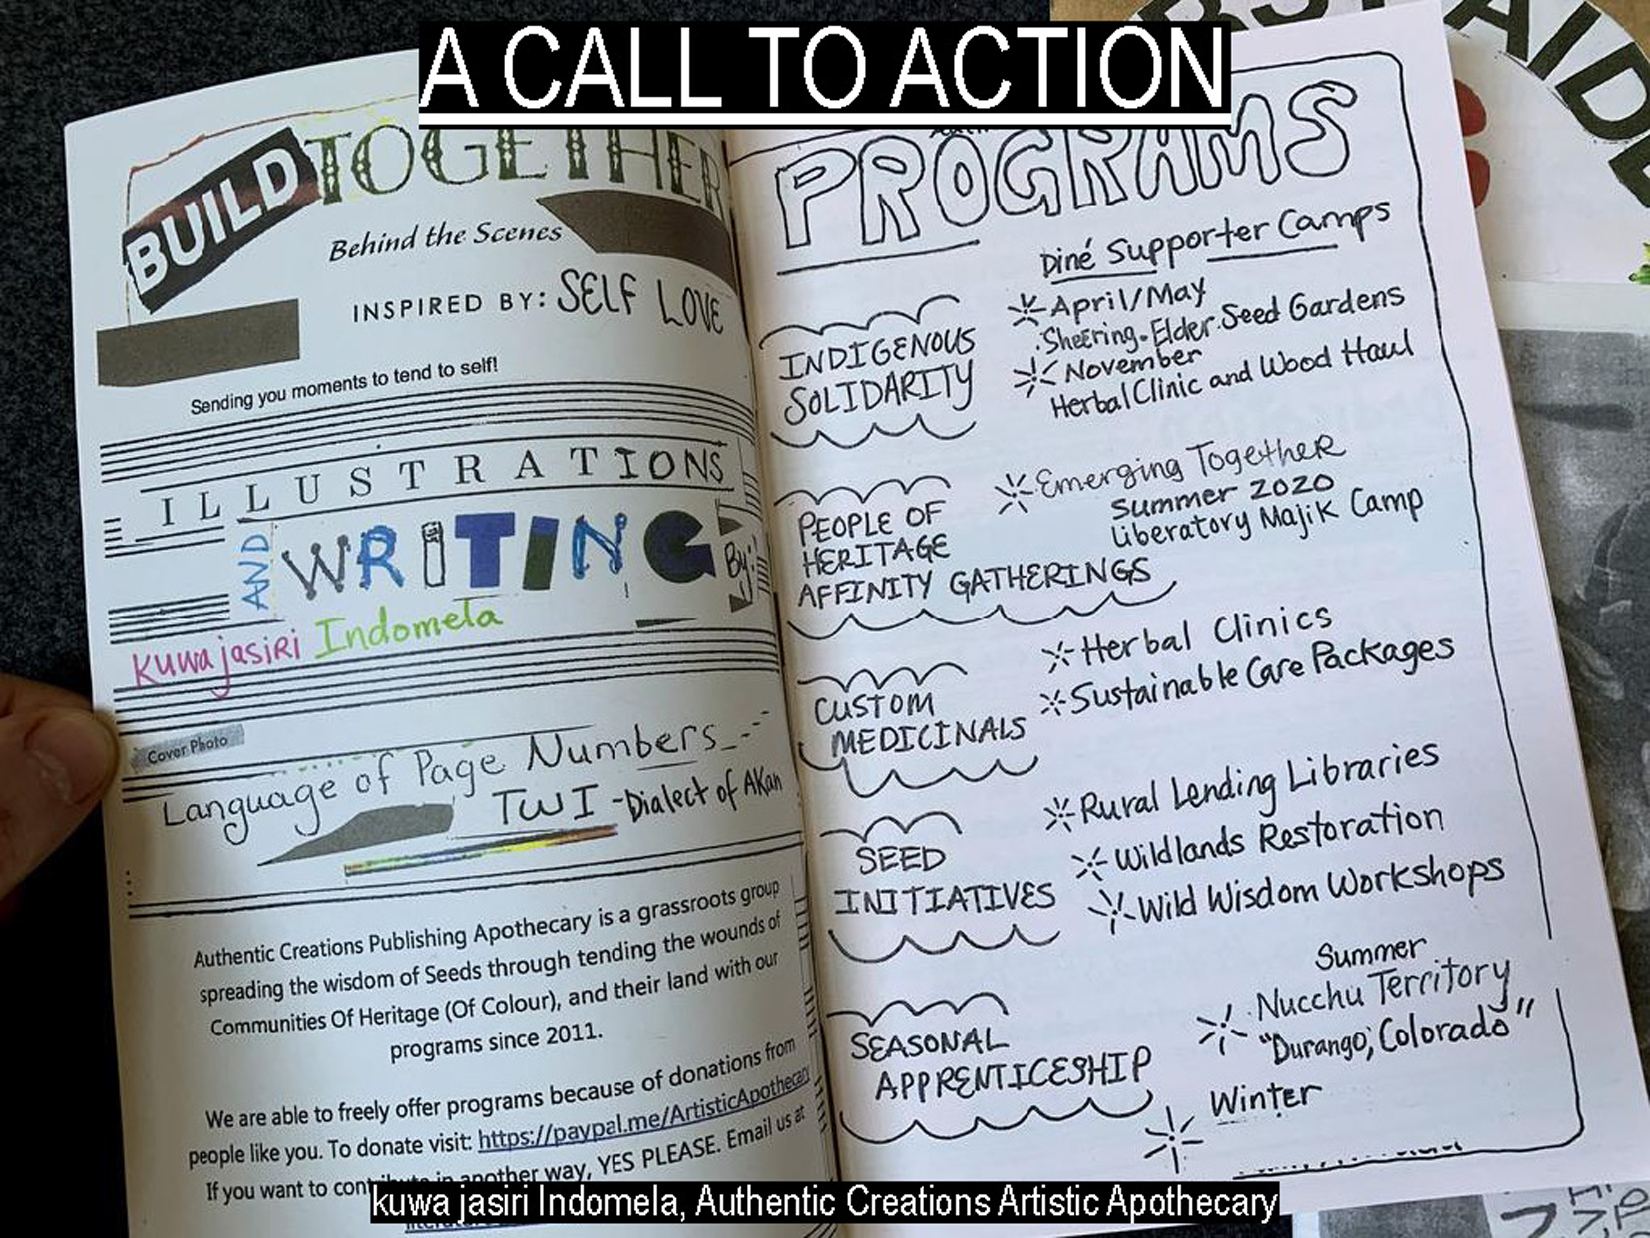 A CALL TO ACTION
BUILD TOGETHER
Behind the Scenes
INSPIRED BY: SELF LOVE
Sending you moments to tend to self!
ILLUSTRATIONS
AND WRITING By:
kuwa jasiri Indomela
Cover Photo
Language of Page Numbers
TWI - Dialect of AKan
Authentic Creations Publishing Apothecary is a grassroots group
spreading the wisdom of Seeds through tending the wounds of
Communities Of Heritage (Of Colour), and their land with our
programs since 2011.
We are able to freely offer programs because of donations from
people like you. To donate visit: https://paypal.me/ArtisticApothecary
If you want to contribute in another way, YES PLEASE. Email us at
PROGRAMS
Diné Supporter Camps
INDIGENOUS
SOLIDARITY
April/May
Sheering-Elder-Seed Gardens
November
Herbal Clinic and Wood Haul
PEOPLE OF
HERITAGE
AFFINITY GATHERINGS
Emerging Together
Summer 2020
Liberatory Majik Camp
CUSTOM
MEDICINALS
Herbal Clinics
Sustainable Care Packages
SEED
INITIATIVES
Rural Lending Libraries
Wildlands Restoration
Wild Wisdom Workshops
SEASONAL
APPRENTICESHIP
Summer
Nucchu Territory
"Durango, Colorado"
Winter
AIDE
kuwa jasiri Indomela, Authentic Creations Artistic Apothecary